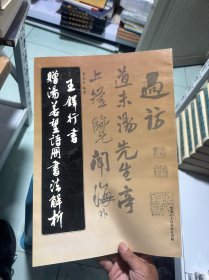 王铎行书
赠汤若望诗册书法解析
過訪
道未湯先生亭
上登覽聞海外